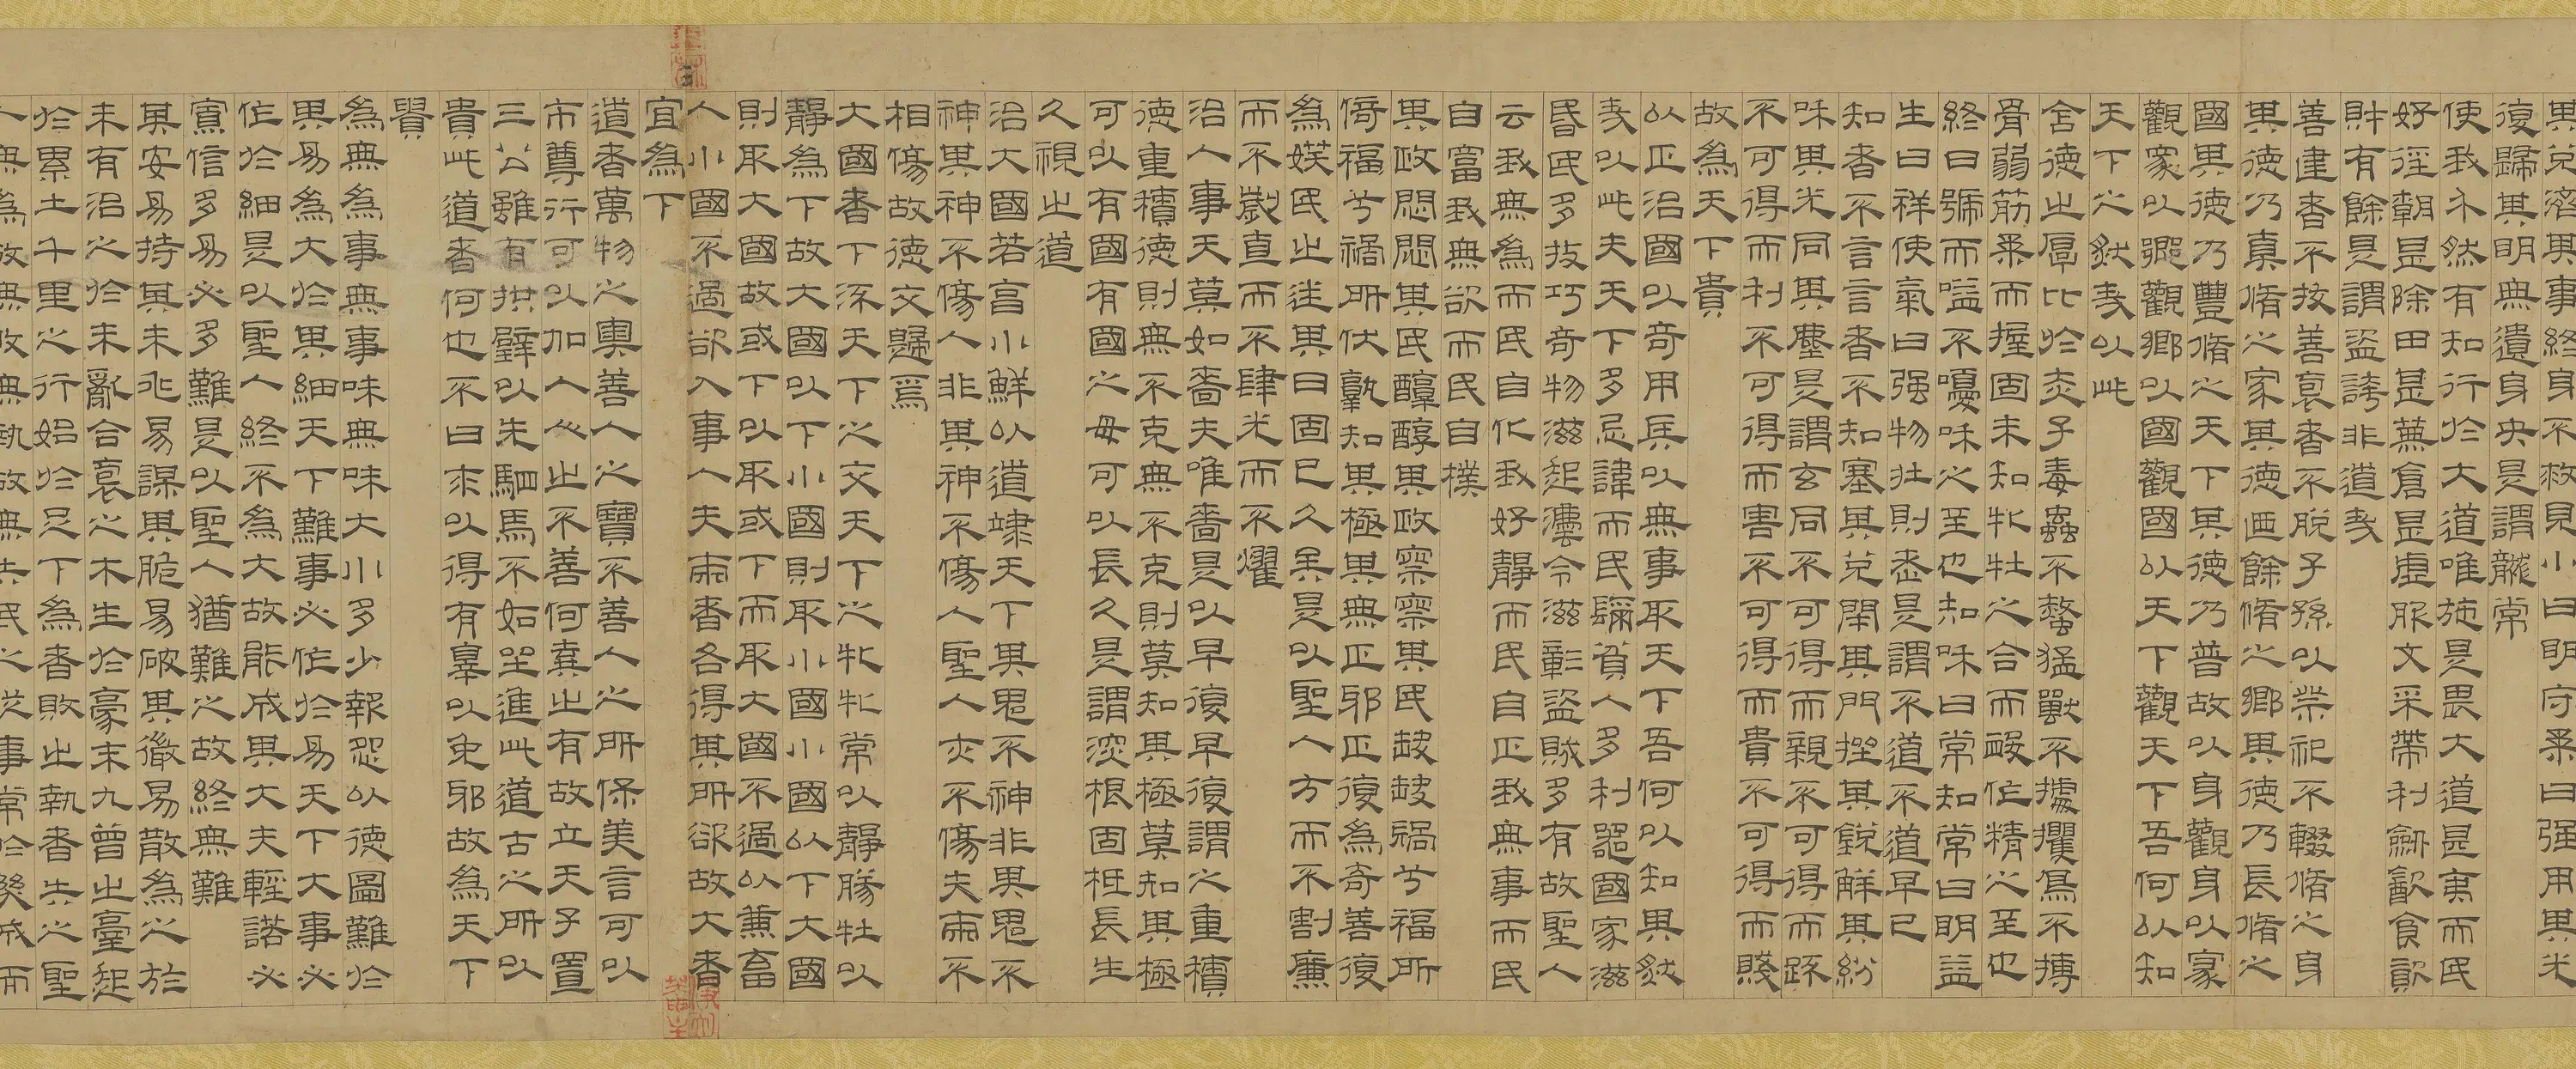 其兌濟其事終身不救見小曰明守柔曰強用其光
復歸其明無遺身央是謂襲常
使我介然有知行於大道唯施是畏大道甚夷而民
好徑朝甚除田甚蕪倉甚虛服文采帶利劒厭食飲
財有餘是謂盜誇非道哉
善建者不拔善裒者不脫子孫以祭祀不輟脩之身
其德乃真脩之家其德迺餘脩之鄉其德乃長脩之
國其德乃豐脩之天下其德乃普故以身觀身以家
觀家以鄉觀鄉以國觀國以天下觀天下吾何以知
天下之然哉以此
含德之厚比於赤子毒蟲不螫猛獸不據攫鳥不搏
骨弱筋柔而握固未知牝牡之合而䘒作精之至也
終日號而嗌不嚘和之至也知和曰常知常曰明益
生曰祥使氣曰强物壯則老是謂不道不道早已
知者不言言者不知塞其兌閉其門挫其銳解其紛
和其光同其塵是謂玄同不可得而親不可得而踈
不可得而利不可得而害不可得而貴不可得而賤
故為天下貴
以正治國以奇用兵以無事取天下吾何以知其然
哉以此夫天下多忌諱而民彌貧人多利器國家滋
昏民多技巧奇物滋起灋令滋彰盜賊多有故聖人
云我無為而民自化我好靜而民自正我無事而民
自富我無欲而民自樸
其政悶悶其民醇醇其政察察其民缺缺禍兮福所
倚福兮禍所伏孰知其極其無正邪正復為奇善復
為妖民之迷其日固已久矣是以聖人方而不割廉
而不劌直而不肆光而不燿
治人事天莫如嗇夫唯嗇是以早復早復謂之重積
德重積德則無不克無不克則莫知其極莫知其極
可以有國有國之母可以長久是謂深根固柢長生
久視之道
治大國若亯小鮮以道竦天下其鬼不神非其鬼不
神其神不傷人非其神不傷人聖人亦不傷夫兩不
相傷故德交歸焉
大國者下流天下之交天下之牝牝常以靜勝牡以
靜為下故大國以下小國則取小國小國以下大國
則取大國故或下以取或下而取大國不過以兼畜
人小國不過欲入事人夫兩者各得其所欲故大者
宜為下
道者萬物之奧善人之寶不善人之所保美言可以
市尊行可以加人人之不善何棄之有故立天子置
三公雖有拱璧以先駟馬不如坐進此道古之所以
貴此道者何也不曰求以得有辠以免邪故為天下
貴
為無為事無事味無味大小多少報怨以德圖難於
其易為大於其細天下難事必作於易天下大事必
作於細是以聖人終不為大故能成其大夫輕諾必
寡信多易必多難是以聖人猶難之故終無難
其安易持其未兆易謀其脆易破其微易散為之於
未有治之於未亂合裒之木生於豪末九曾之臺起
於累土千里之行始於足下為者敗之執者失之聖
人無為故無敗無執故無失民之從事常於幾成而